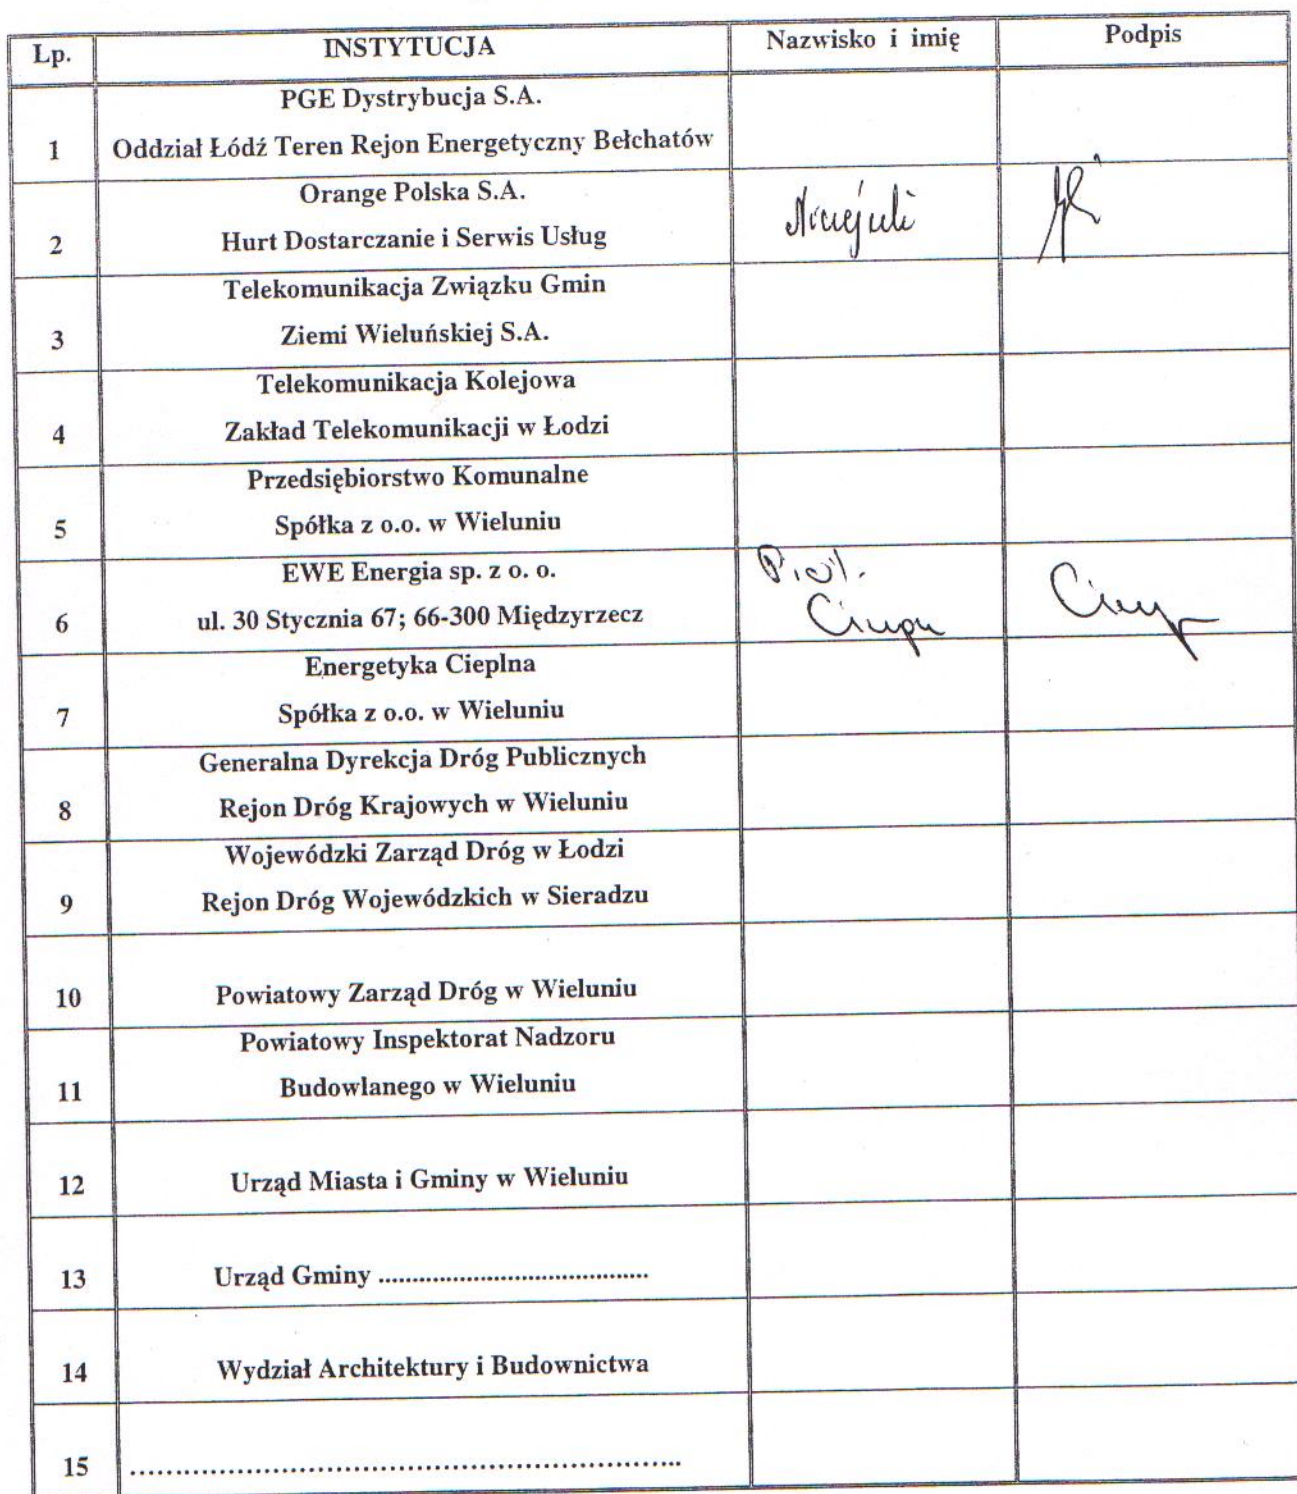 Lp. INSTYTUCJA Nazwisko i imię Podpis
PGE Dystrybucja S.A.
1 Oddział Łódź Teren Rejon Energetyczny Bełchatów
Orange Polska S.A.
2 Hurt Dostarczanie i Serwis Usług
Telekomunikacja Związku Gmin
3 Ziemi Wieluńskiej S.A.
Telekomunikacja Kolejowa
4 Zakład Telekomunikacji w Łodzi
Przedsiębiorstwo Komunalne
5 Spółka z o.o. w Wieluniu
EWE Energia sp. z o. o.
6 ul. 30 Stycznia 67; 66-300 Międzyrzecz
Energetyka Cieplna
7 Spółka z o.o. w Wieluniu
Generalna Dyrekcja Dróg Publicznych
8 Rejon Dróg Krajowych w Wieluniu
Wojewódzki Zarząd Dróg w Łodzi
9 Rejon Dróg Wojewódzkich w Sieradzu
10 Powiatowy Zarząd Dróg w Wieluniu
Powiatowy Inspektorat Nadzoru
11 Budowlanego w Wieluniu
12 Urząd Miasta i Gminy w Wieluniu
13 Urząd Gminy ........................................
14 Wydział Architektury i Budownictwa
15 ..............................................................